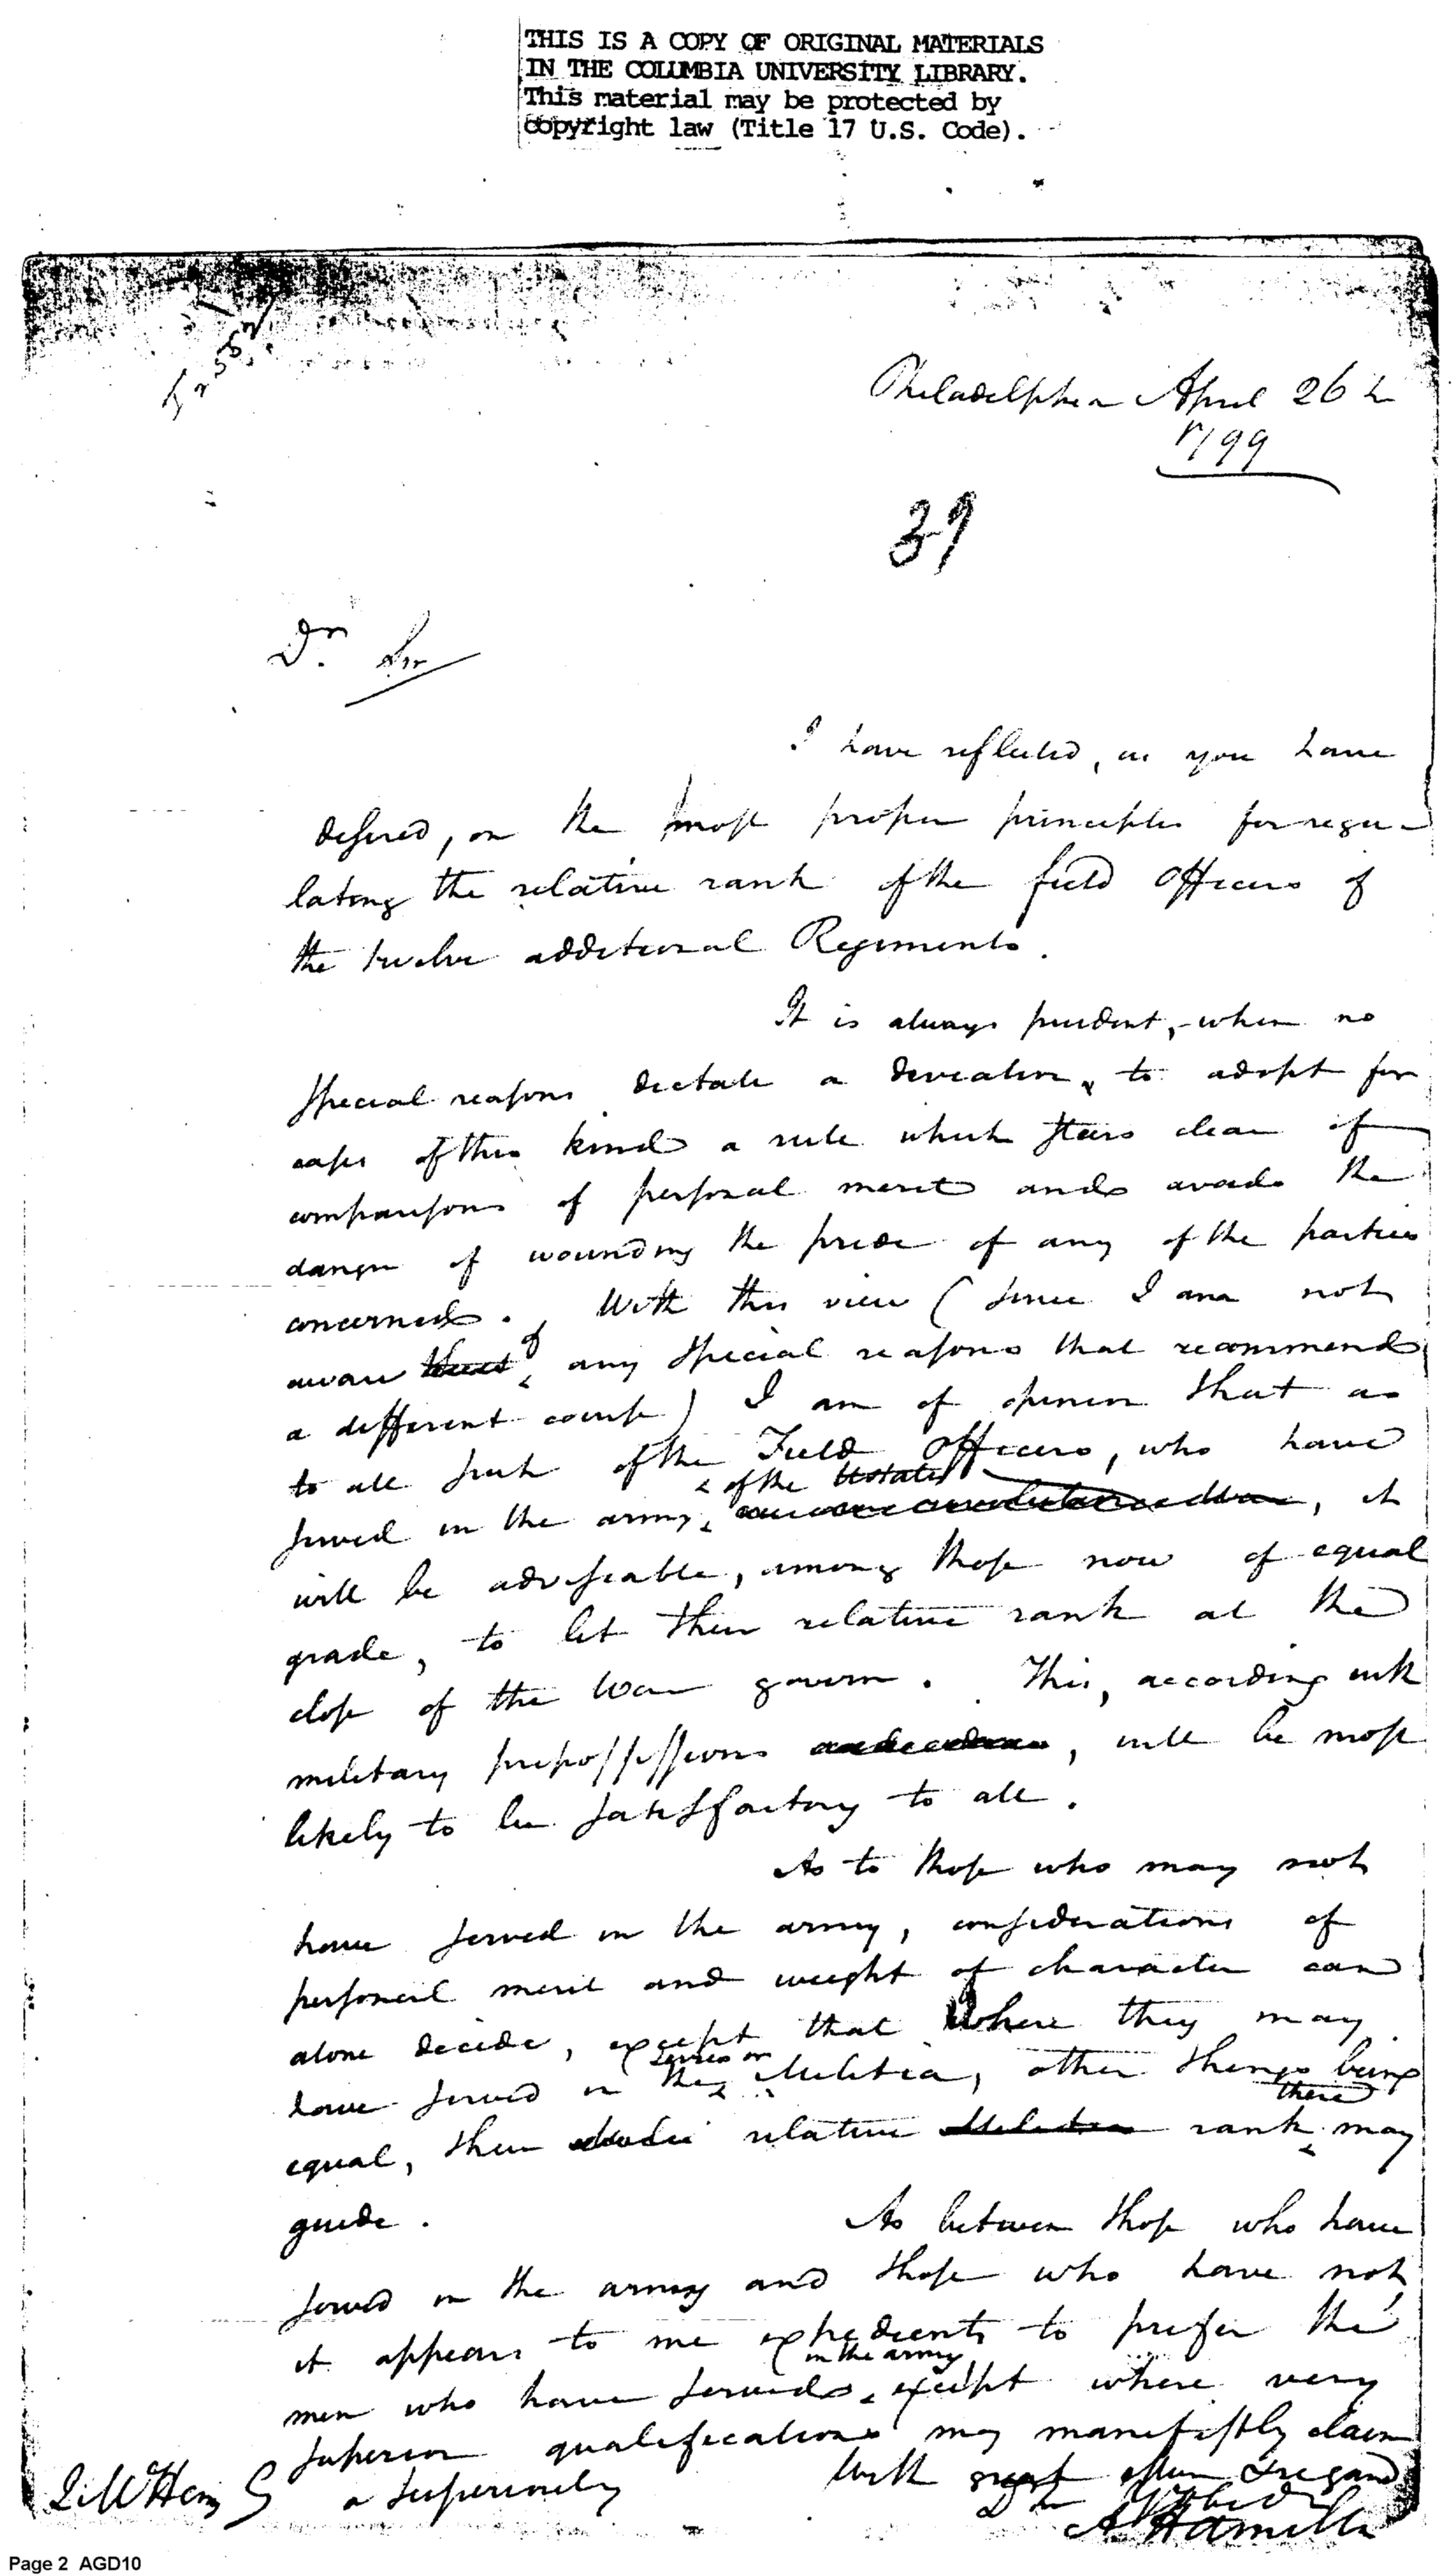 THIS IS A COPY OF ORIGINAL MATERIALS
IN THE COLUMBIA UNIVERSITY LIBRARY.
This material may be protected by
copyright law (Title 17 U.S. Code).
Philadelphia April 26th
1799
39
Dr. Sir
I have reflected, as you have
desired, on the most proper principles for regu-
lating the relative rank of the field Officers of
the twelve additional Regiments.
It is always prudent, when no
special reasons dictate a deviation, to adopt for
cases of this kind a rule which steers clear of
comparisons of personal merit and avoids the
danger of wounding the pride of any of the parties
concerned. With this view (since I am not
aware that of any special reasons that recommend
a different course) I am of opinion that as
to all such of the Field Officers, who have
of the UStates
served in the army, it
will be adviseable, among those now of equal
grade, to let their relative rank at the
close of the war govern. This, according with
military prepossessions, will be most
likely to be satisfactory to all.
As to those who may not
have served in the army, considerations of
personal merit and weight of character can
alone decide, except that where they may
have served in the Militia, other things being
there
equal, their relative rank may
guide.
As between those who have
served in the army and those who have not,
it appears to me expedient to prefer the
in the army
men who have served, except where very
superior qualifications may manifestly claim
a superiority
With great esteem & regard
A Hamilton
J. McHenry
Page 2 AGD10